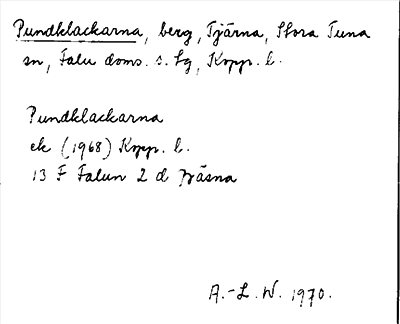 Pundklackarna, berg, Tjärna, Stora Tuna
sn, Falu doms. s. tg, Kopp. l.
Pundklackarna
ek (1968) Kopp. l.
13 F Falun 2 d Fjäsna
A.-L. W. 1970.